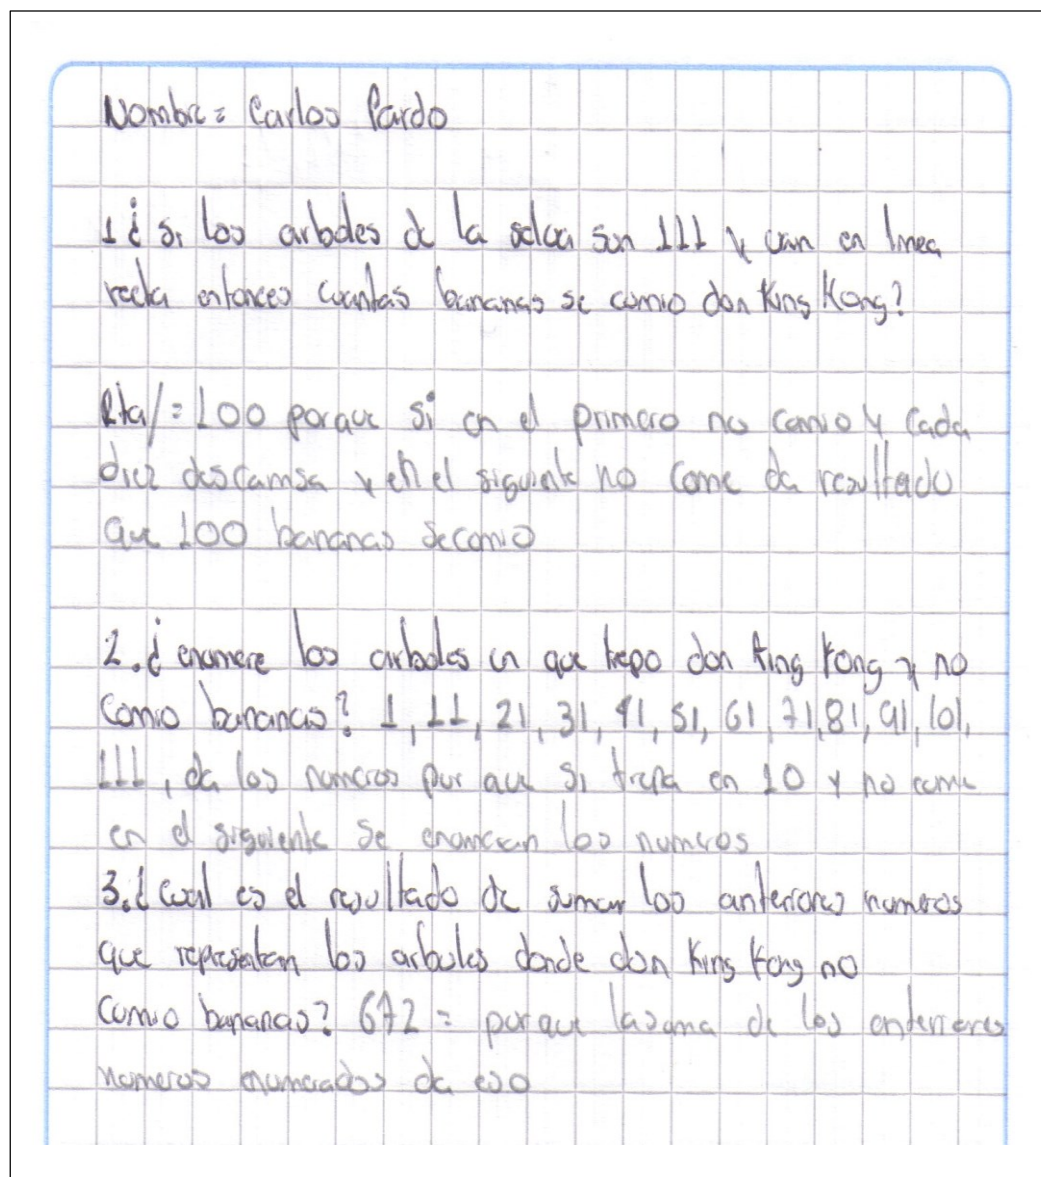 Nombre = Carlos Pardo
1 ¿ si los arboles de la selva son 111 y van en linea
recta entonces cuantas bananas se comio don King Kong?
Rta/= 100 porque si en el primero no comio y cada
diez descamsa y en el siguiente no come da resultado
que 100 bananas se comio
2. ¿ enumere los arboles en que trepo don King Kong y no
comio bananas? 1, 11, 21, 31, 41, 51, 61, 71, 81, 91, 101,
111, da los numeros por que si trepa en 10 y no come
en el siguiente se enumeran los numeros
3. ¿ cual es el resultado de sumar los anteriores numeros
que representan los arboles donde don King Kong no
comio bananas? 672 = porque la suma de los anteriores
numeros enumerados da eso